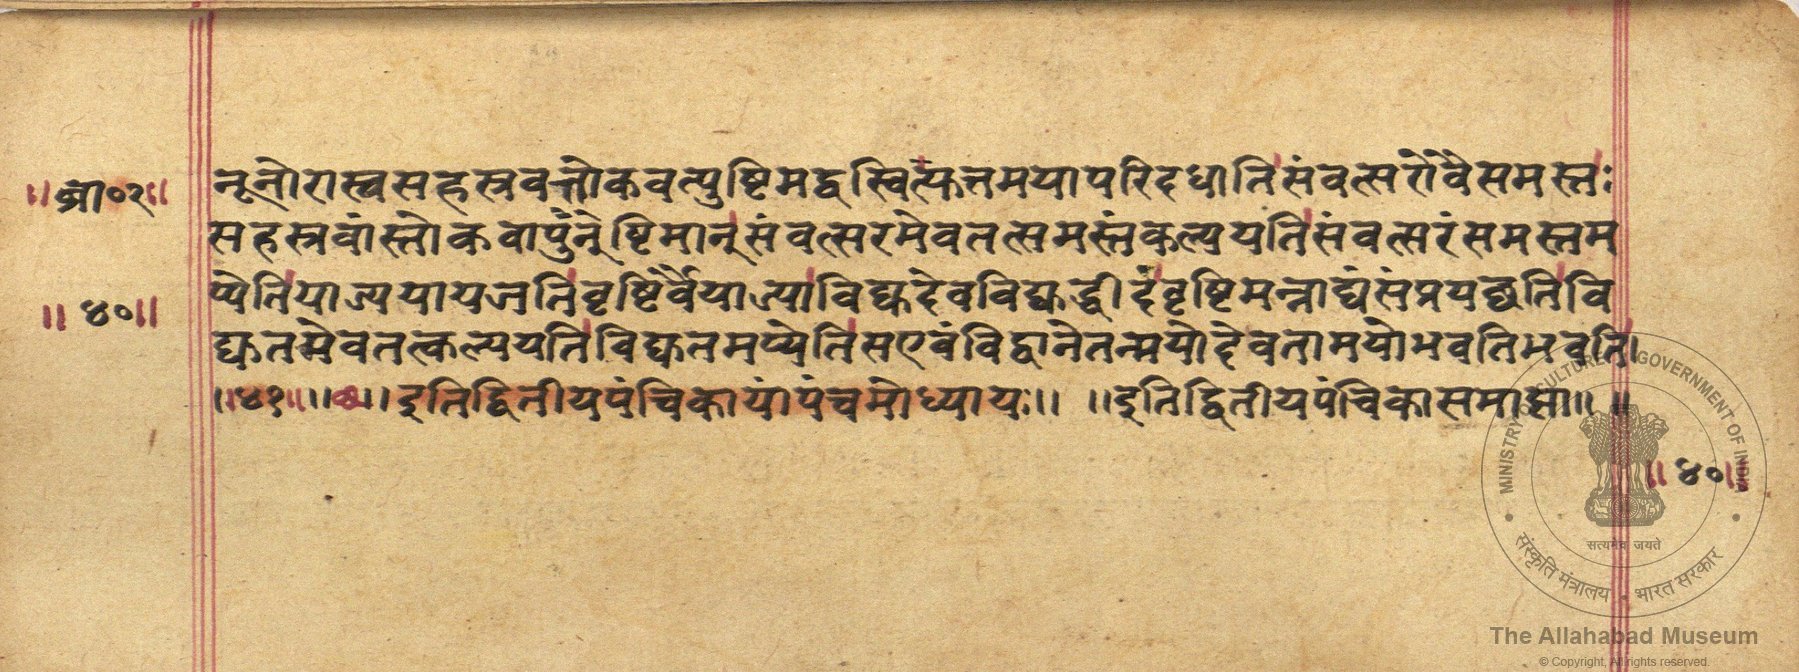 ॥ब्रा॰२॥
नूनोरास्वसहस्रवत्तोकवत्पुष्टिमद्वस्वित्युत्तमयापरिदधातिसंवत्सरोवैसमस्तः
सहस्रवांस्तोकवान्पुष्टिमान्संवत्सरमेवतत्समस्तंकल्पयतिसंवत्सरंसमस्तम
प्येतियाज्ययायजतिवृष्टिर्वैयाज्याविद्युदेवविद्युद्धीदंवृष्टिमन्नाद्यंसंप्रयच्छतिवि
॥४०॥
द्युतमेवतत्कल्पयतिविद्युतमप्येतिसएवंविद्वानेतन्मयोदेवतामयोभवतिभवति।
॥४१॥ ॥छ॥ इतिद्वितीयपंचिकायांपंचमोध्यायः॥ ॥इतिद्वितीयपंचिकासमाप्ता॥ ॥
॥४०॥
MINISTRY OF CULTURE GOVERNMENT OF INDIA
सत्यमेव जयते
संस्कृति मंत्रालय - भारत सरकार
The Allahabad Museum
© Copyright, All rights reserved.